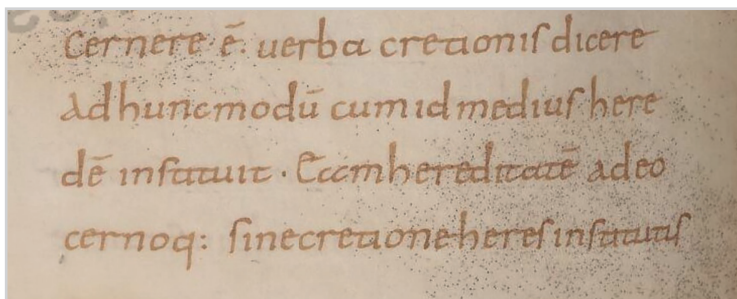 Cernere ē. uerba cretionis dicere
ad hunc modū cum id medius here
dē instituit · Eccm hereditatē adeo
cernoq: sine cretione heres institutis